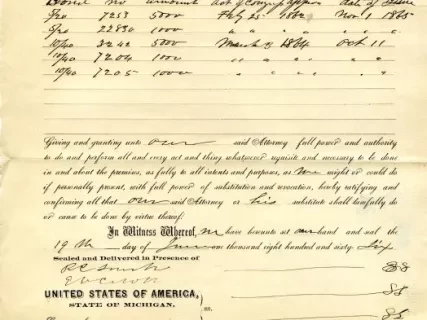 Bond no amount act of Congress appro date of Issue
5/20 7253 5000 Feby 25 1862 Nov 1 1865
5/20 22830 1000 " " " " " "
10/40 3242 5000 March 3 1864 Oct 11
10/40 7204 1000 " " " " "
10/40 7205 1000 " " " "
Giving and granting unto our said Attorney full power and authority
to do and perform all and every act and thing whatsoever requisite and necessary to be done
in and about the premises, as fully to all intents and purposes, as We might or could do
if personally present, with full power of substitution and revocation, hereby ratifying and
confirming all that our said Attorney or his substitute shall lawfully do
or cause to be done by virtue thereof.
In Witness Whereof, We have hereunto set our hand and seal the
19th day of June one thousand eight hundred and sixty Six
Sealed and Delivered in Presence of
UNITED STATES OF AMERICA,
STATE OF MICHIGAN,
ss.